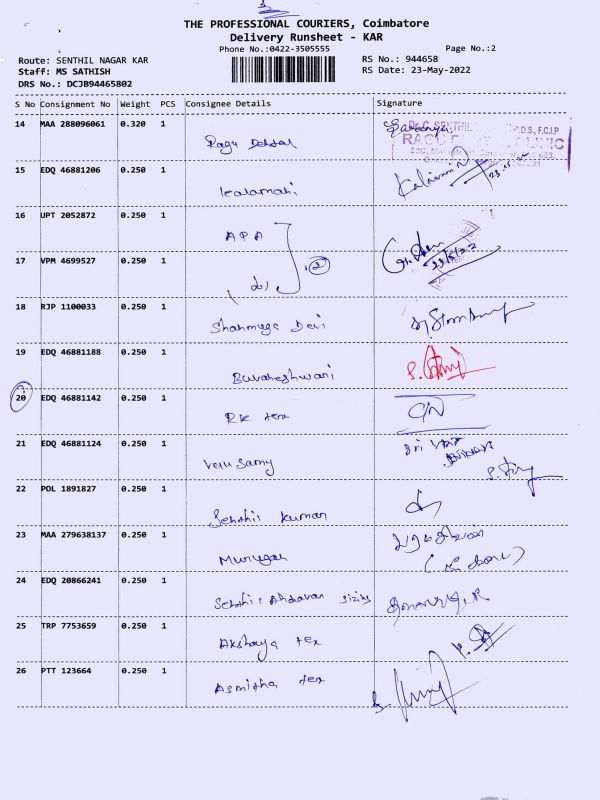 THE PROFESSIONAL COURIERS, Coimbatore
Delivery Runsheet - KAR
Phone No.:0422-3505555
Page No.:2
Route: SENTHIL NAGAR KAR
RS No.: 944658
Staff: MS SATHISH
RS Date: 23-May-2022
DRS No.: DCJB94465802
S No Consignment No Weight PCS Consignee Details Signature
14 MAA 288096061 0.320 1
Ragu Dental
15 EDQ 46881206 0.250 1
kalamani
16 UPT 2052872 0.250 1
APA
17 VPM 4699527 0.250 1
2
18 RJP 1100033 0.250 1
Shanmuga Devi
19 EDQ 46881188 0.250 1
Buvaneshwari
20 EDQ 46881142 0.250 1
RK tex
21 EDQ 46881124 0.250 1
velu samy
22 POL 1891827 0.250 1
Senthil kumar
23 MAA 279638137 0.250 1
Murugan
24 EDQ 20866241 0.250 1
Senthil Andavan sizing
25 TRP 7753659 0.250 1
Akshaya tex
26 PTT 123664 0.250 1
Asmitha tex